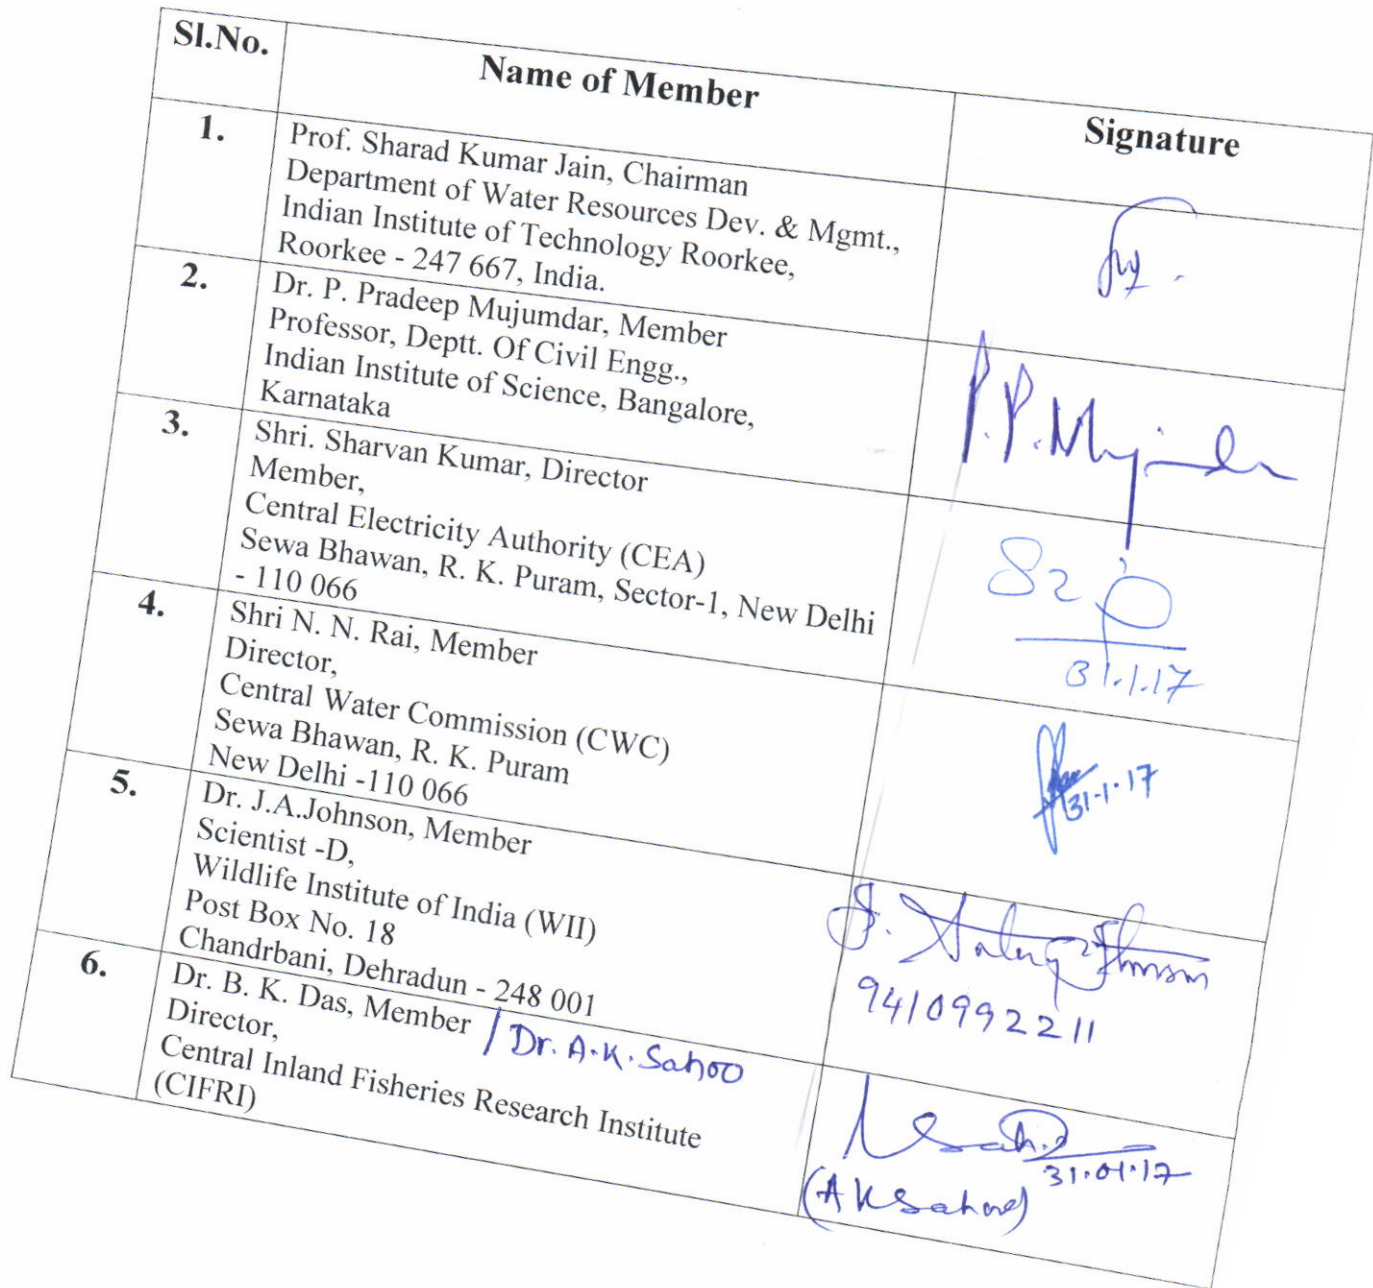 Sl.No. Name of Member Signature
1. Prof. Sharad Kumar Jain, Chairman
Department of Water Resources Dev. & Mgmt.,
Indian Institute of Technology Roorkee,
Roorkee - 247 667, India.
2. Dr. P. Pradeep Mujumdar, Member
Professor, Deptt. Of Civil Engg.,
Indian Institute of Science, Bangalore,
Karnataka
P.P.Mujumdar
3. Shri. Sharvan Kumar, Director
Member,
Central Electricity Authority (CEA)
Sewa Bhawan, R. K. Puram, Sector-1, New Delhi
- 110 066
31.1.17
4. Shri N. N. Rai, Member
Director,
Central Water Commission (CWC)
Sewa Bhawan, R. K. Puram
New Delhi -110 066
31.1.17
5. Dr. J.A.Johnson, Member
Scientist -D,
Wildlife Institute of India (WII)
Post Box No. 18
Chandrbani, Dehradun - 248 001
9410992211
6. Dr. B. K. Das, Member / Dr. A.K. Sahoo
Director,
Central Inland Fisheries Research Institute
(CIFRI)
31.01.17
(A K Sahoo)